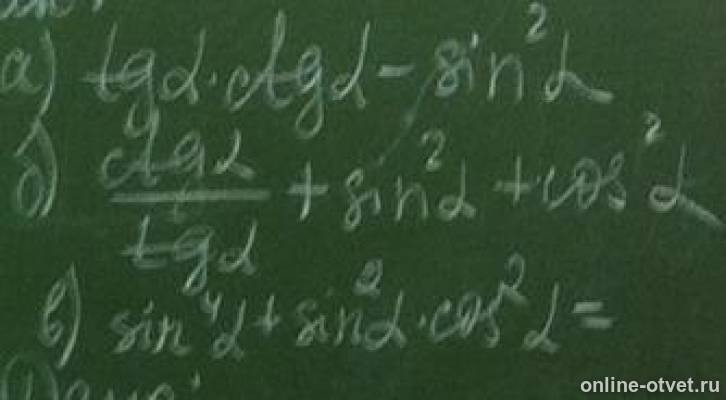 а) tgα·ctgα - sin²α
б) ctgα/tgα + sin²α + cos²α
в) sin⁴α + sin²α·cos²α =
online-otvet.ru